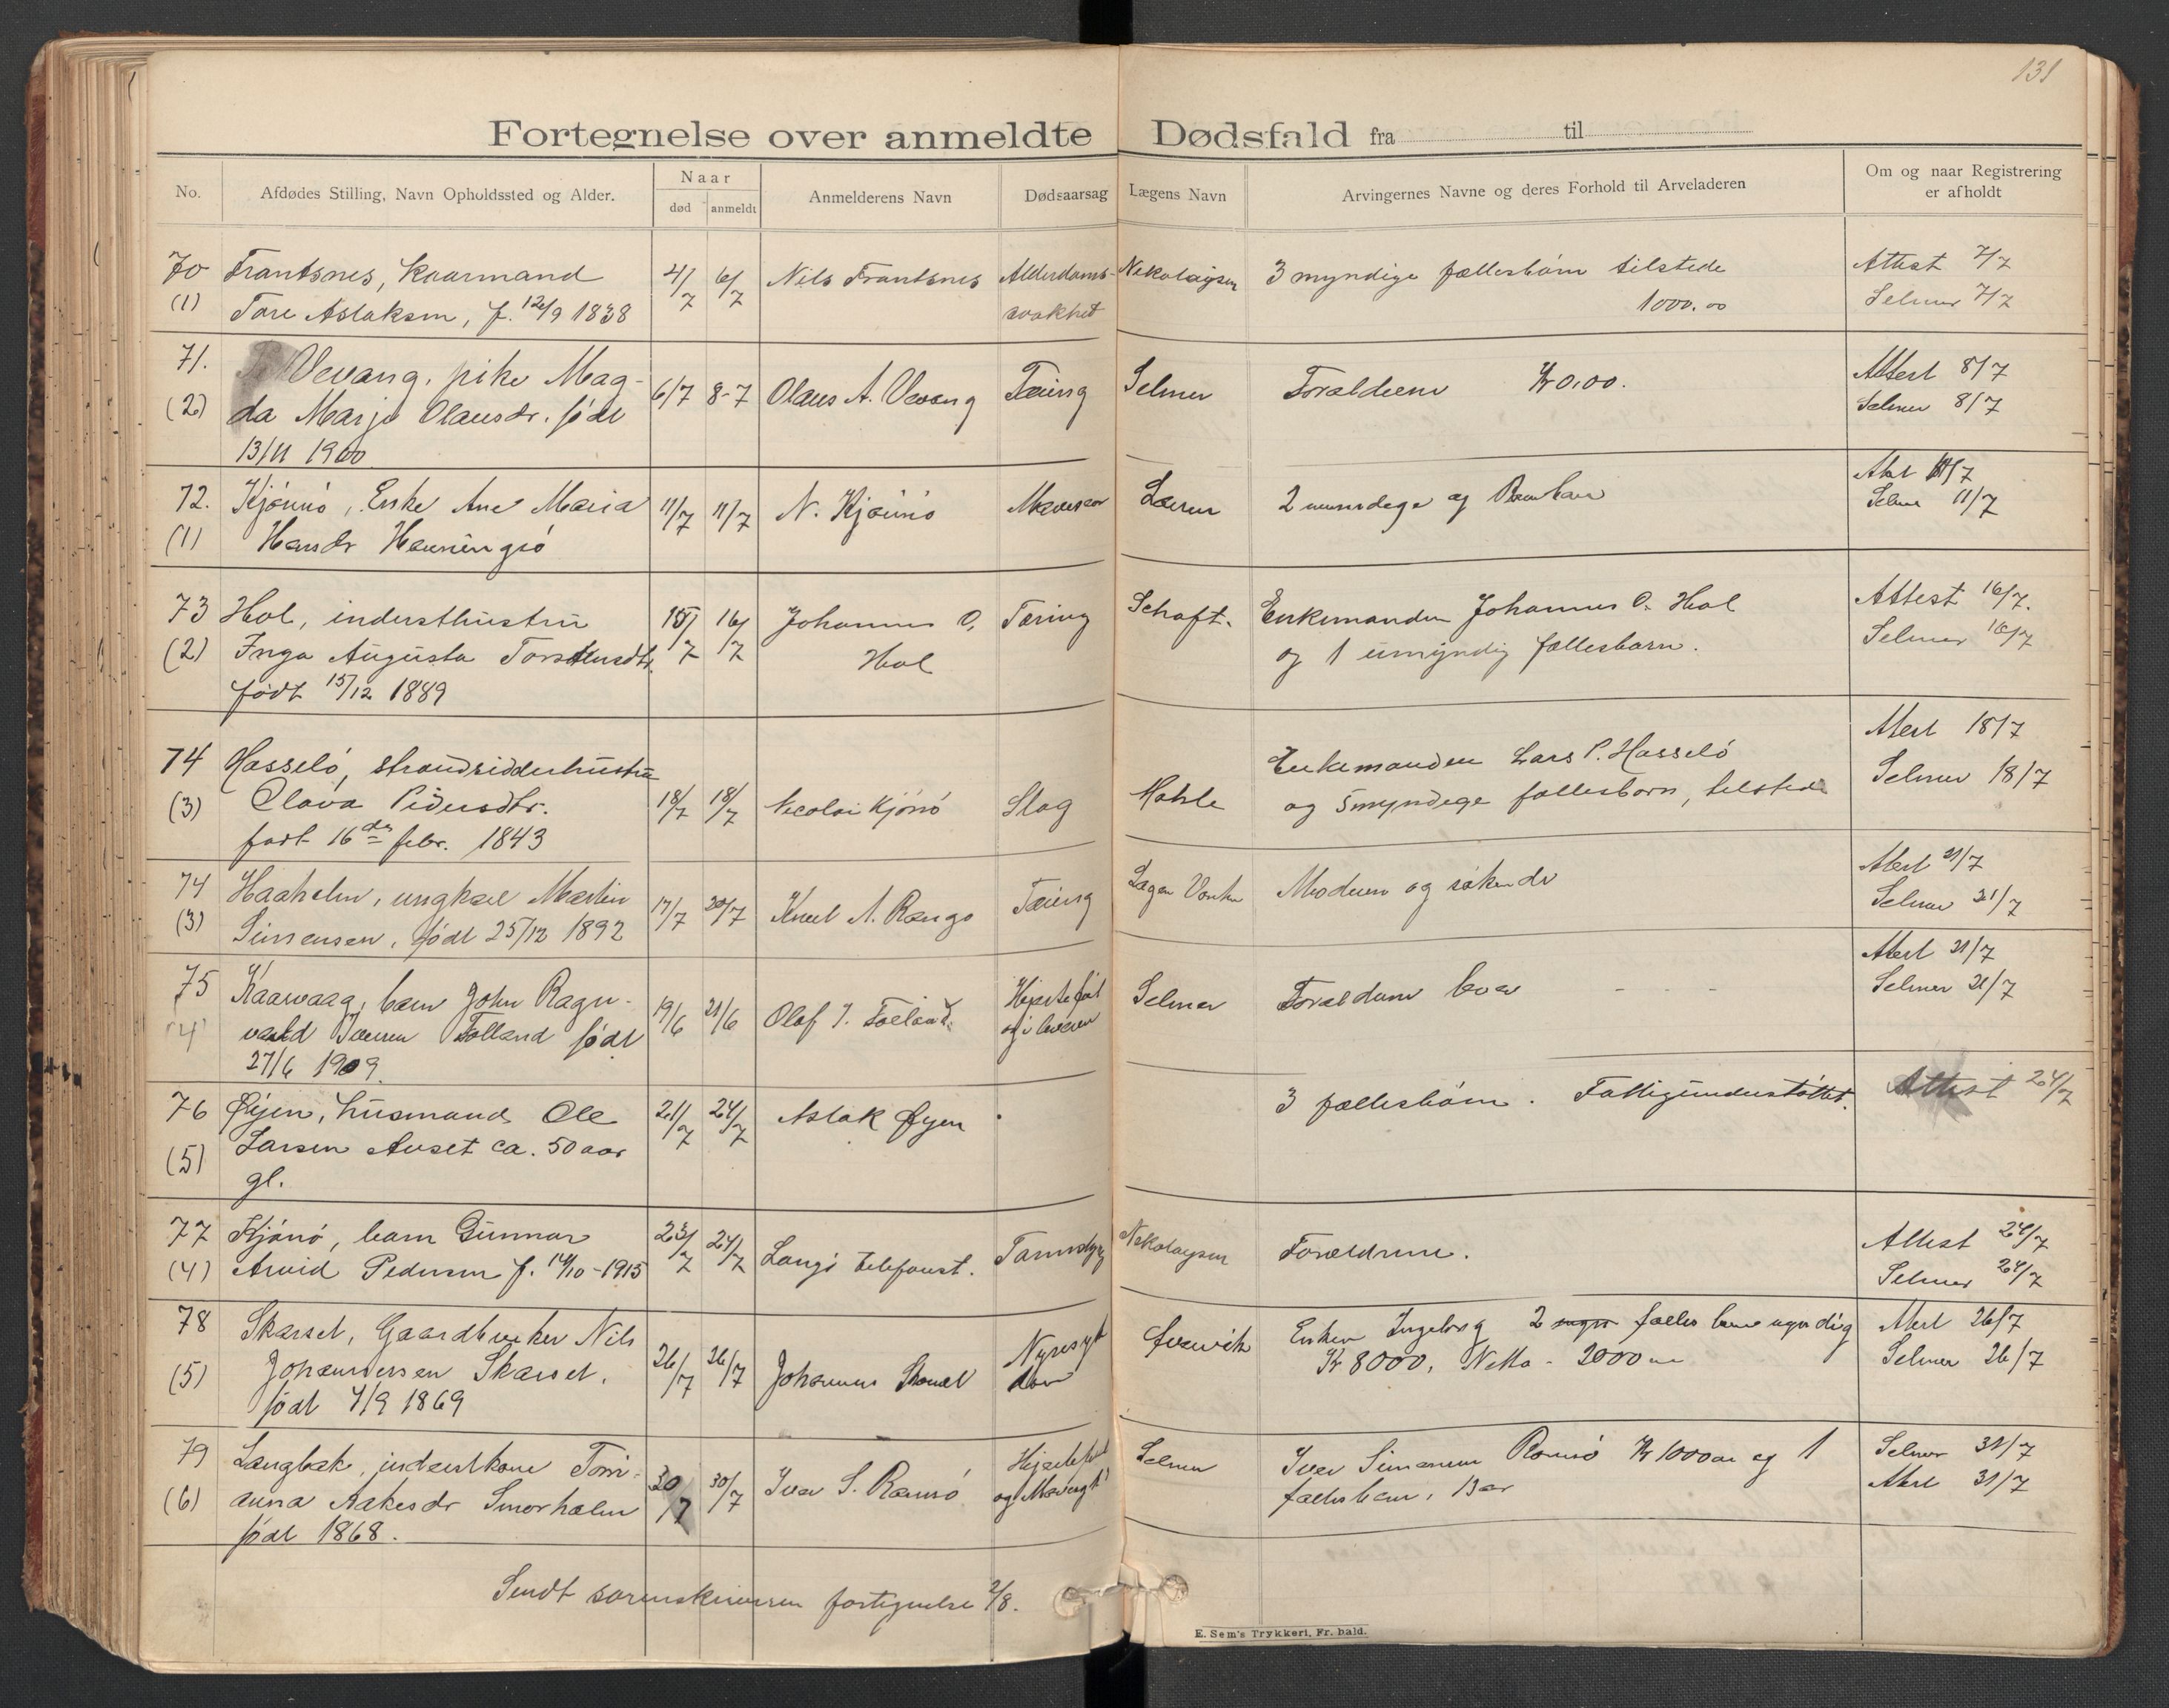 131
Fortegnelse over anmeldte Dødsfald fra til
No.
Afdødes Stilling, Navn Opholdssted og Alder.
Naar
død
anmeldt
Anmelderens Navn
Dødsaarsag
Lægens Navn
Arvingernes Navne og deres Forhold til Arveladeren
Om og naar Registrering
er afholdt
70 Frantsnes, kaarmand 4/7 6/7 Nils Frantsnes Alderdoms- Nikolaysen 3 myndige fællesbørn tilstede Attest 7/7
(1) Tore Aslaksen, f. 12/9 1838 svakhet 1000.00 Selmer 7/7
71. Vevang, pike Mag- 6/7 8-7 Olaus A. Vevang Tæring Selmer Forældrene Kr 0,00. Attest 8/7
(2) da Marje Olausdr. født Selmer 8/7
13/11 1900
72. Kjønnø, Enke Ane Maria 11/7 11/7 N. Kjønnø Lærer 2 og Attest 11/7
(1) Hansdr Henningsø Selmer 11/7
73 Hol, indersthustru 15/7 16/7 Johannes O. Tæring Schøft. Enkemanden Johannes O. Hol Attest 16/7.
(2) Inga Augusta Torstensdtr. Hol og 1 umyndig fællesbarn. Selmer 16/7
født 15/12 1889
74 Hasselø, strandsidderhustru 18/7 18/7 Nicolai Kjønø Slag Hohle Enkemanden Lars P. Hasselø Attest 18/7
(3) Olava Pedersdtr. og 5 myndige fællesbørn, tilstede Selmer 18/7
født 16de febr. 1843
74 Haaholm, ungkarl Martin 17/7 20/7 Knut A. Tæring Moderen og søskende Attest 21/7
(3) Simensen, født 25/12 1892 Selmer 21/7
75 Kaarvaag, barn John Ragn- 19/6 21/6 Olaf J. Folland Hjertefeil Selmer Forældrene lever - - - Attest 21/7
(4) vald Folland født Selmer 21/7
27/6 1909.
76 Øyen, husmand Ole 21/7 24/7 Aslak Øyen 3 fællesbørn. Fattigunderstøttet. Attest 24/7
(5) Larsen Auset ca. 50 aar
gl.
77 Kjønø, barn Gunnar 23/7 24/7 Langø telefonst. Nikolaysen Forældrene. Attest 24/7
(4) Arvid Pedersen f. 14/10-1915 Selmer 24/7
78 Skarset, Gaardbruker Nils 26/7 26/7 Johannes Skarset Nyresyk Enken Ingeborg 2 fælles barn myndig Attest 26/7
(5) Johannessen Skarset. dom Kr 8000, Netto - 2000 Selmer 26/7
født 4/9 1869
79 Langbak, inderstkone Tom- 30/7 30/7 Iver S. Ramsø Hjertefeil Selmer Iver Simensen Ramsø Kr 1000 og 1 Selmer 31/7
(6) anna Aakesdr Smørholm og fællesbarn, 13 aar Attest 31/7
født 1868.
Sendt sorenskriveren fortegnelse 2/8.
E. Sem's Trykkeri, Fr. hald.